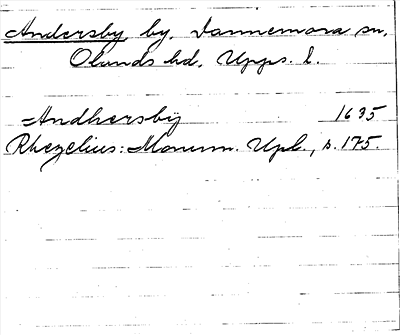 Andersby by, Dannemora sn,
Olands hd, Upps. l.
=Andhersbÿ 1635
Rhezelius: Monum. Upl., s. 175.